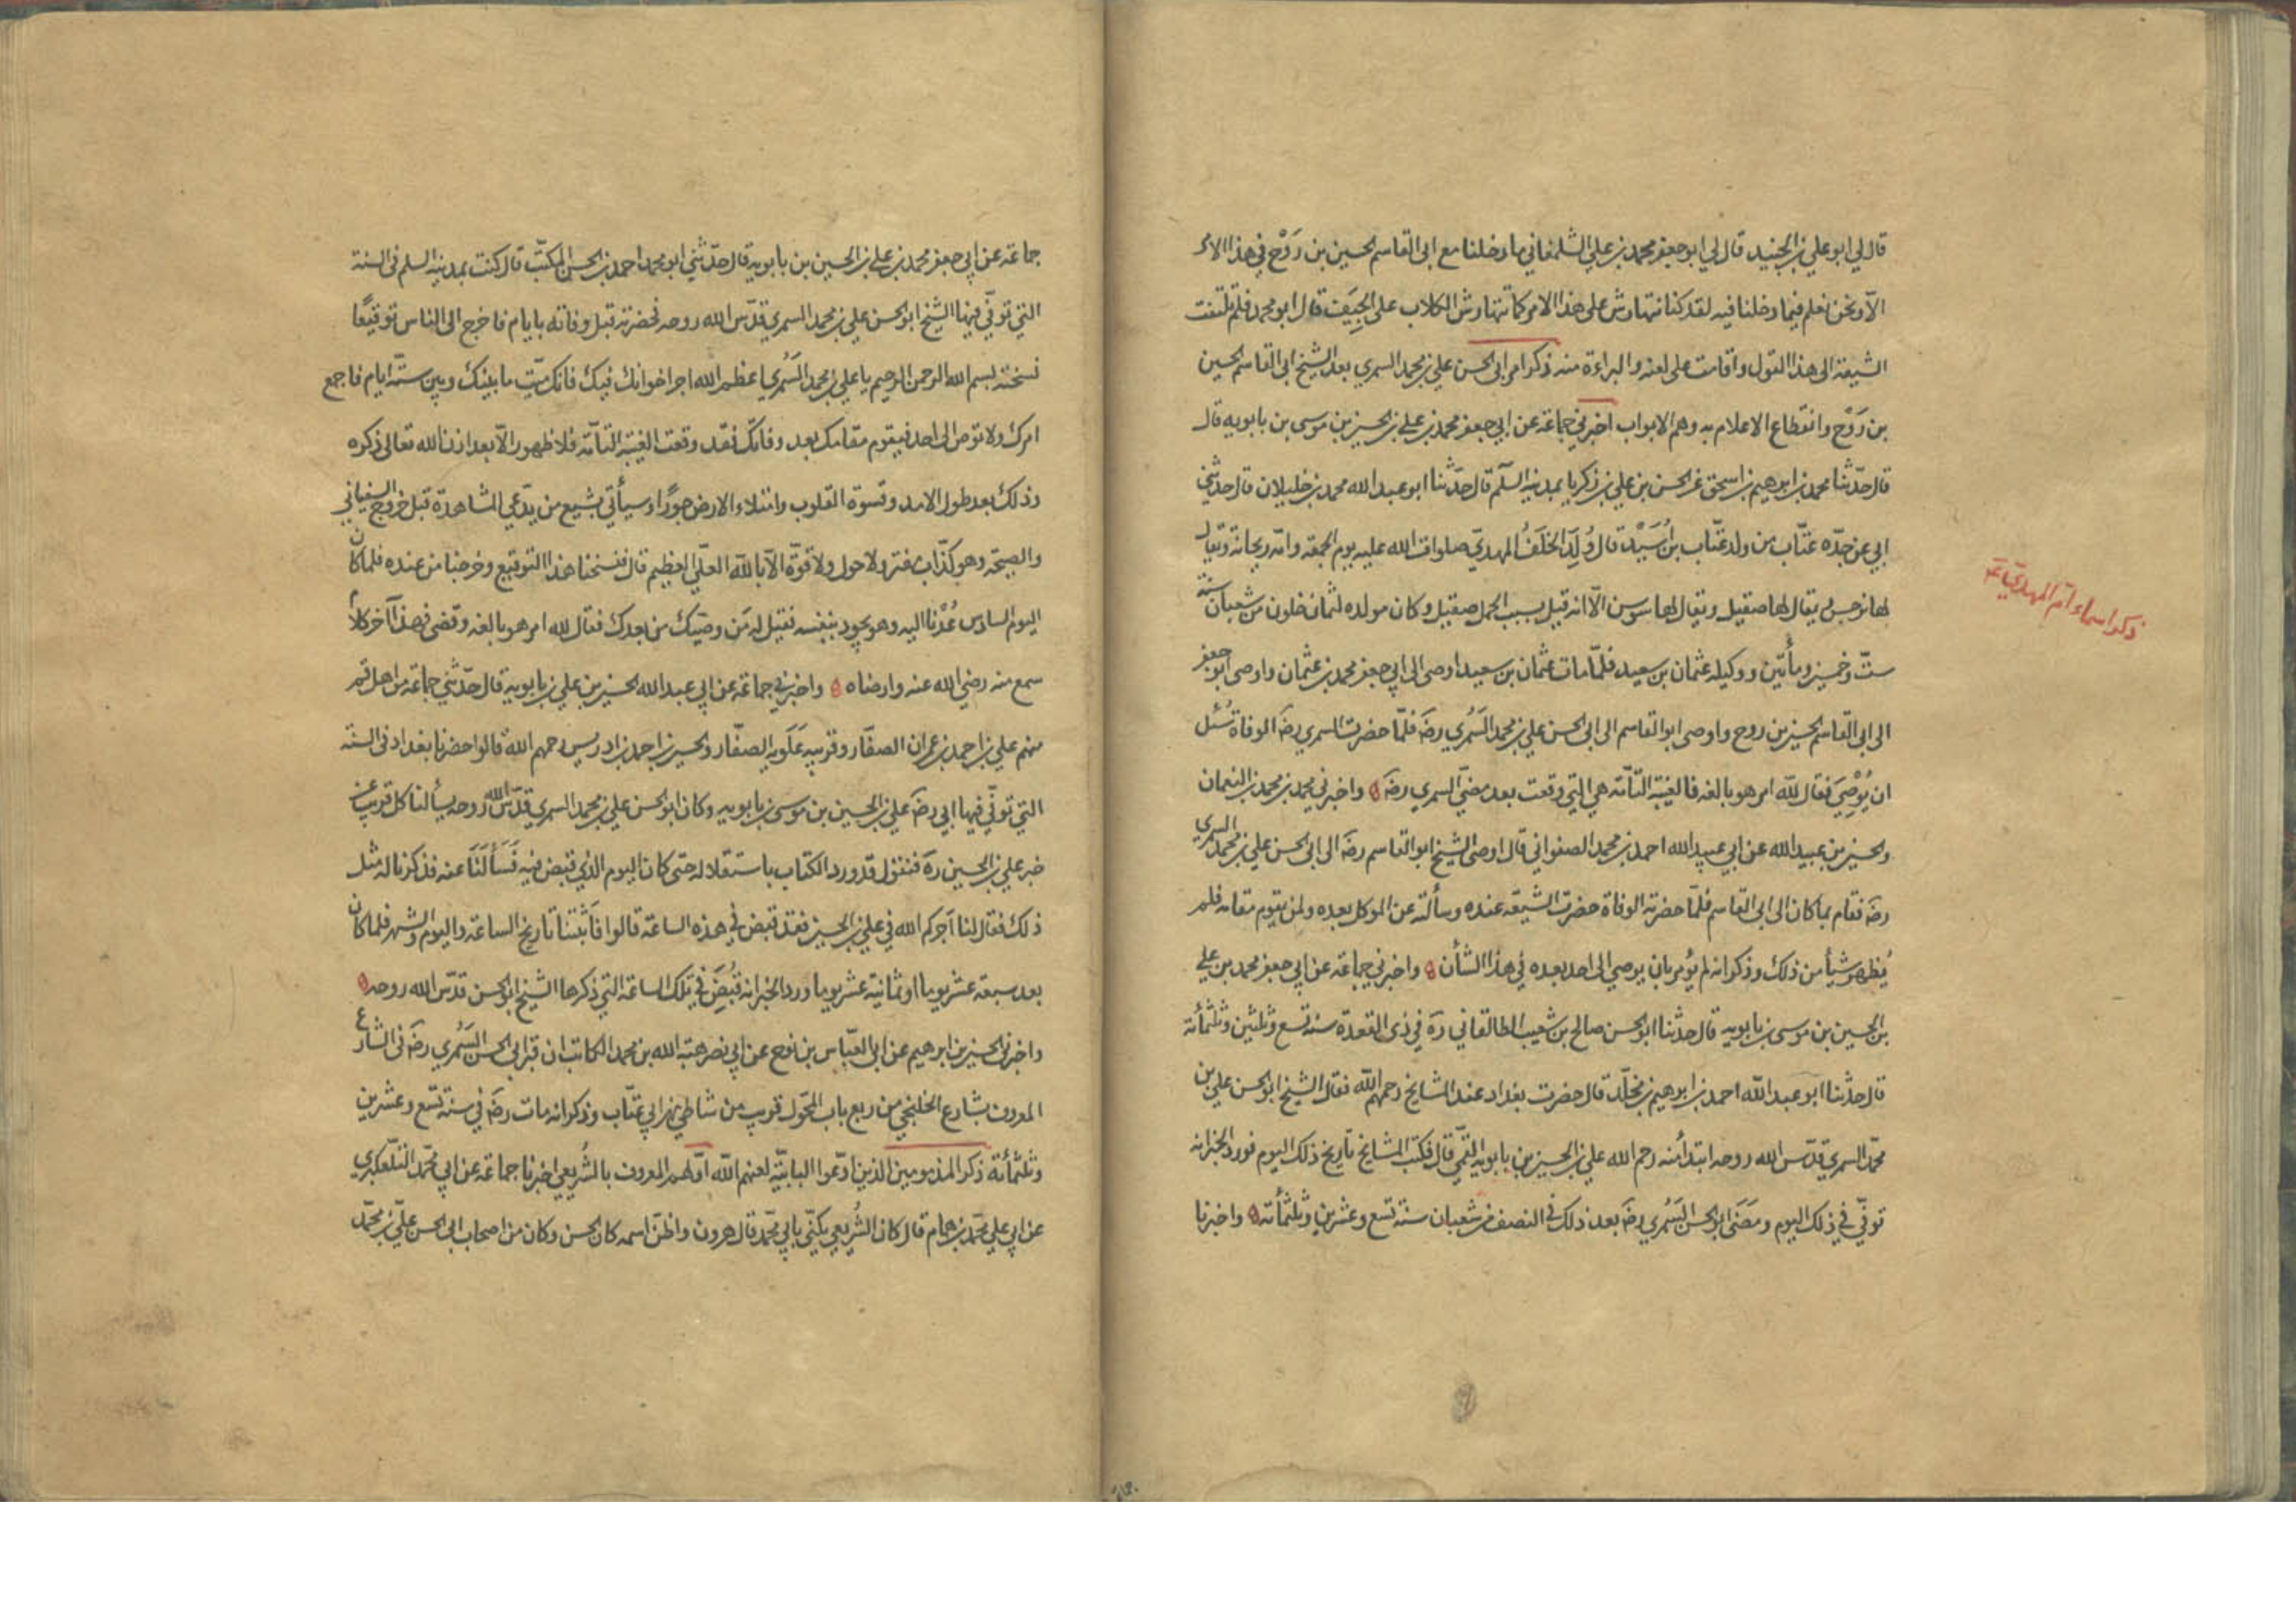 قال لي ابو علي بن الجنيد قال لي ابو جعفر محمد بن علي الشلمغاني ما دخلنا مع ابي القاسم الحسين بن رَوْح في هذا الامر
الّا ونحن نعلم فيما دخلنا فيه لقد كنا نتهارش على هذا الامر كما تتهارش الكلاب على الجِيَف قال ابو محمد فلم تلتفت
الشيعة الى هذا القول واقامت على لعنه والبراءة منه ذكر امر ابي الحسن علي بن محمد السمري بعد الشيخ ابي القاسم الحسين
بن رَوْح وانقطاع الاعلام به وهم الابواب اخبرني جماعة عن ابي جعفر محمد بن علي بن الحسين بن موسى بن بابويه قال
قال حدّثنا محمد بن ابرهيم بن اسحق عن الحسن بن علي بن زكريا بمدينة السلم قال حدّثنا ابو عبد الله محمد بن خليلان قال حدثني
ابي عن جدّه عتّاب من ولد عتّاب بن اُسَيْد قال وُلِدَ الخَلَفُ المهديّ صلوات الله عليه يوم الجمعة وامّه ريحانة ويقال
لها نرجس ويقال لها صقيل ويقال لها سوسن الّا انه قيل بسبب الحمل صقيل وكان مولده لثمان خلون من شعبان سنة
ستّ وخمسين ومأتين ووكيله عثمان بن سعيد فلمّا مات عثمان بن سعيد اوصى الى ابي جعفر محمد بن عثمان واوصى ابو جعفر
الى ابي القاسم الحسين بن روح واوصى ابو القاسم الى ابي الحسن علي بن محمد السَمُري رضَ فلمّا حضرت السمري رضَ الوفاة سُئل
ان يُوْصِيَ فقال لله امر هو بالغه فالغيبة التّامّة هي التي وقعت بعد مضيّ السمري رضَ واخبرني محمد بن محمد بن النعمان
والحسين بن عبيد الله عن ابي عبد الله احمد بن محمد الصفواني قال اوصى الشيخ ابو القاسم رضَ الى ابي الحسن علي بن محمد السمري
رضَ فقام بما كان الى ابي القاسم فلمّا حضرته الوفاة حضرت الشيعة عنده وسألته عن الموكل بعده ولمن يقوم مقامه فلم
يُظهر شيأ من ذلك وذكر انه لم يُؤمر بان يوصي الى احد بعده في هذا الشأن واخبرني جماعة عن ابي جعفر محمد بن علي
بن الحسين بن موسى بن بابويه قال حدثنا ابو الحسن صالح بن شعيب الطالقاني رَه في ذي القعدة سنة تسع وثلثين وثلثمأئة
قال حدّثنا ابو عبد الله احمد بن ابرهيم بن مخلّد قال حضرت بغداد عند المشايخ رحمهم الله فقال الشيخ ابو الحسن علي بن
محمّد السمري قدّس الله روحه ابتدأ منه رحم الله علي بن الحسين بن بابويه القمّي قال فكتب المشايخ تاريخ ذلك اليوم فورد الخبر انه
توفّي في ذلك اليوم ومَضَى ابو الحسن السَمُري رضَ بعد ذلك في النصف من شعبان سنة تسع وعشرين وثلثمأئة واخبرنا
ذكر اسماء امّ المهديّ عَ
جماعة عن ابي جعفر محمد بن علي بن الحسين بن بابويه قال حدّثني ابو محمد احمد بن الحسن المكتّب قال كنت بمدينة السلم في السنة
التي توفّي فيها الشيخ ابو الحسن علي بن محمد السمري قدّس الله روحه فحضرته قبل وفاته بايام فاخرج الى الناس توقيعًا
نسخته بسم الله الرحمن الرحيم يا علي بن محمد السَمُري اعظم الله اجر اخوانك فيك فانك ميّت ما بينك وبين ستّة ايام فاجمع
امرك ولا توص الى احد فيقوم مقامك بعد وفاتك فقد وقعت الغيبة التآمّة فلا ظهور الّا بعد اذن الله تعالى ذكره
وذلك بعد طول الامد وقسوة القلوب وامتلاء الارض جورًا وسيأتي بشيع من يدّعي المشاهدة قبل خروج السفياني
والصيحة وهو كذّاب مفتر ولا حول ولا قوّة الّا بالله العليّ العظيم قال فنسخنا هذا التوقيع وخرجنا من عنده فلما كان
اليوم السادس عُدْنا اليه وهو يجود بنفسه فقيل له مَن وصيّك من بعدك فقال لله امر هو بالغه وقضى فهذا آخر كلام
سمع منه رضي الله عنه وارضاه واخبرني جماعة عن ابي عبد الله الحسين بن علي بن بابويه قال حدّثني جماعة من اهل قم
منهم علي بن احمد بن عمران الصفّار وقريبه عَلَويه الصفّار والحسين بن احمد بن ادريس رحمهم الله قالوا حضرنا بغداد في السنة
التي توفّي فيها ابي رضَ علي بن الحسين بن موسى بن بابويه وكان ابو الحسن علي بن محمد السمري قدّس الله روحه يسألنا كل قريب عن
خبر علي بن الحسين رَه فنقول قد ورد الكتاب باستقلاله حتى كان اليوم الذي قبض فيه فَسَأَلَنَا عنه فذكرنا له مثل
ذلك فقال لنا آجركم الله في علي بن الحسين فقد قبض في هذه الساعة قالوا فَاَثبتنا تاريخ الساعة واليوم والشهر فلما كان
بعد سبعة عشر يوما او ثمانية عشر يوما ورد الخبر انه قُبِضَ في تلك الساعة التي ذكرها الشيخ ابو الحسن قدّس الله روحه
واخبرني الحسين بن ابرهيم عن ابي العبّاس بن نوح عن ابي نصر هبة الله بن محمد الكاتب ان قبر ابي الحسن السَمُري رضَ في الشارع
المعروف بشارع الخلنجي من ربع باب المحوّل قريب من شاطي نهر ابي عتّاب وذكر انه مات رضَ في سنة تسع وعشرين
وثلثمأئة ذكر المذمومين الذين ادّعوا البابيّة لعنهم الله اوّلهم المعروف بالشُرِيعي اخبرنا جماعة عن ابي محمّد التلّعكبري
عن ابي علي محمّد بن همام قال كان الشُرِيعي يكنّى بابي محمّد قال هرون واظنّ اسمه كان الحسن وكان من اصحاب ابي الحسن عليّ بن محمّد